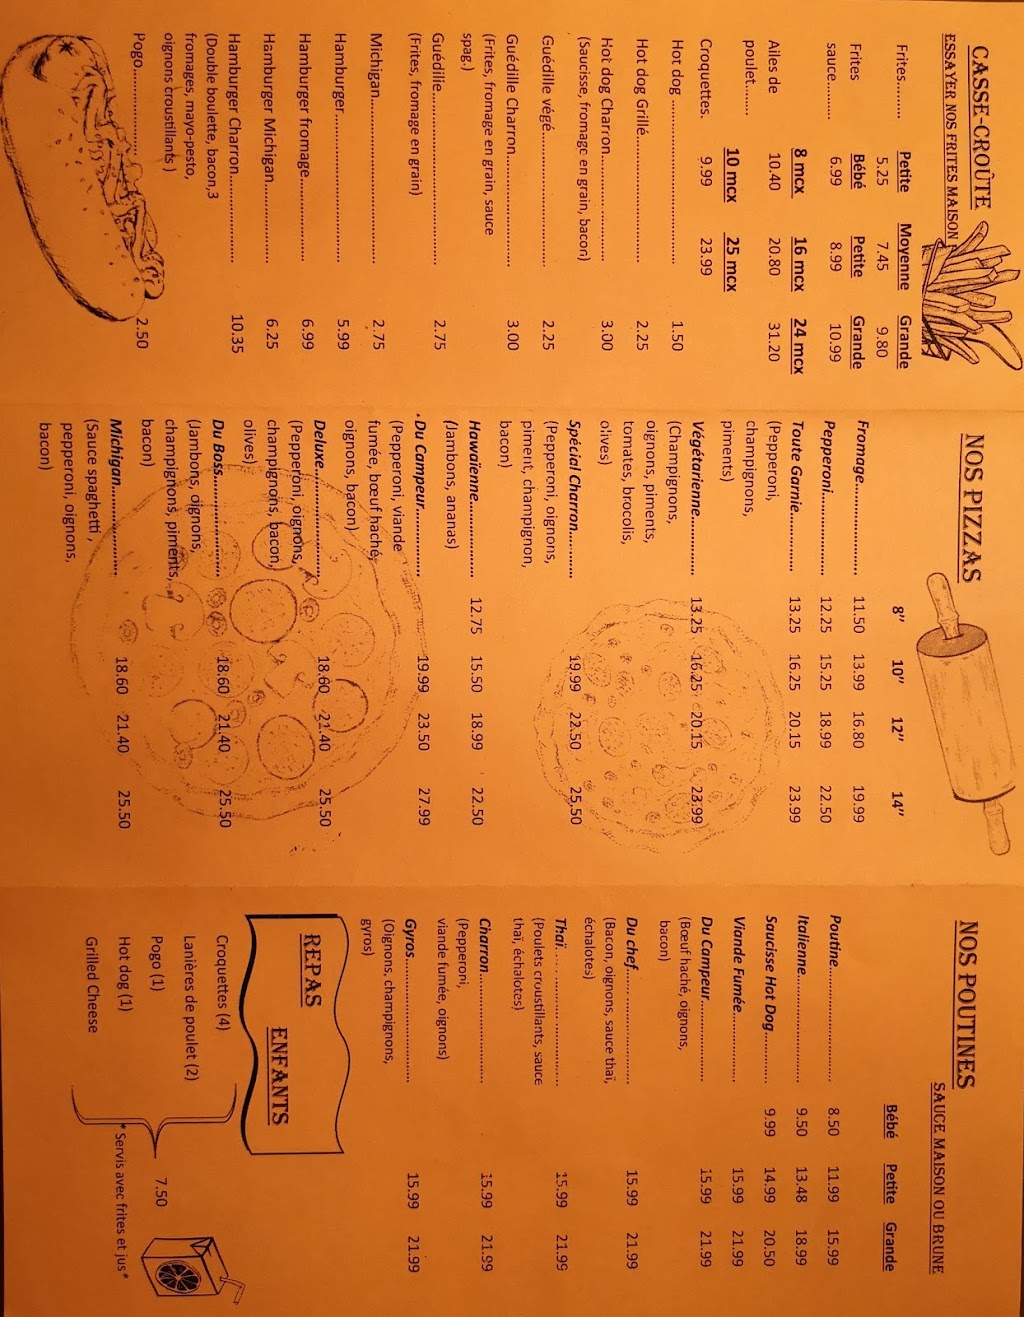 CASSE-CROÛTE
ESSAYER NOS FRITES MAISON
Petite Moyenne Grande
Frites......... 5.25 7.45 9.80
Bébé Petite Grande
Frites
sauce.......... 6.99 8.99 10.99
8 mcx 16 mcx 24 mcx
Ailes de 10.40 20.80 31.20
poulet.......
10 mcx 25 mcx
Croquettes. 9.99 23.99
Hot dog ................................ 1.50
Hot dog Grillé.......................... 2.25
Hot dog Charron........................ 3.00
(Saucisse, fromage en grain, bacon)
Guédille végé........................... 2.25
Guédille Charron........................ 3.00
(Frites, fromage en grain, sauce
spag.)
Guédille................................ 2.75
(Frites, fromage en grain)
Michigan................................ 2.75
Hamburger.............................. 5.99
Hamburger fromage.................... 6.99
Hamburger Michigan.................... 6.25
Hamburger Charron..................... 10.35
(Double boulette, bacon,3
fromages, mayo-pesto,
oignons croustillants )
Pogo.................... 2.50
NOS PIZZAS
8’’ 10’’ 12’’ 14’’
Fromage.................... 11.50 13.99 16.80 19.99
Pepperoni................. 12.25 15.25 18.99 22.50
Toute Garnie.............. 13.25 16.25 20.15 23.99
(Pepperoni,
champignons,
piments)
Végétarienne............. 13.25 16.25 20.15 23.99
(Champignons,
oignons, piments,
tomates, brocolis,
olives)
Spécial Charron.......... 19.99 22.50 25.50
(Pepperoni, oignons,
piment, champignon,
bacon)
Hawaïenne................ 12.75 15.50 18.99 22.50
(Jambons, ananas)
Du Campeur.............. 19.99 23.50 27.99
(Pepperoni, viande
fumée, bœuf haché,
oignons, bacon)
Deluxe...................... 18.60 21.40 25.50
(Pepperoni, oignons,
champignons, bacon,
olives)
Du Boss.................... 18.60 21.40 25.50
(Jambons, oignons,
champignons, piments,
bacon)
Michigan................... 18.60 21.40 25.50
(Sauce spaghetti ,
pepperoni, oignons,
bacon)
NOS POUTINES
SAUCE MAISON OU BRUNE
Bébé Petite Grande
Poutine........................ 8.50 11.99 15.99
Italienne....................... 9.50 13.48 18.99
Saucisse Hot Dog............. 9.99 14.99 20.50
Viande Fumée................. 15.99 21.99
Du Campeur................... 15.99 21.99
(Bœuf haché, oignons,
bacon)
Du chef......................... 15.99 21.99
(Bacon, oignons, sauce thaï,
échalotes)
Thaï............................. 15.99 21.99
(Poulets croustillants, sauce
thaï, échalotes)
Charron......................... 15.99 21.99
(Pepperoni,
viande fumée, oignons)
Gyros........................... 15.99 21.99
(Oignons, champignons,
gyros)
REPAS
ENFANTS
Croquettes (4)
Lanières de poulet (2)
Pogo (1) 7.50
Hot dog (1)
Grilled Cheese
*Servis avec frites et jus*